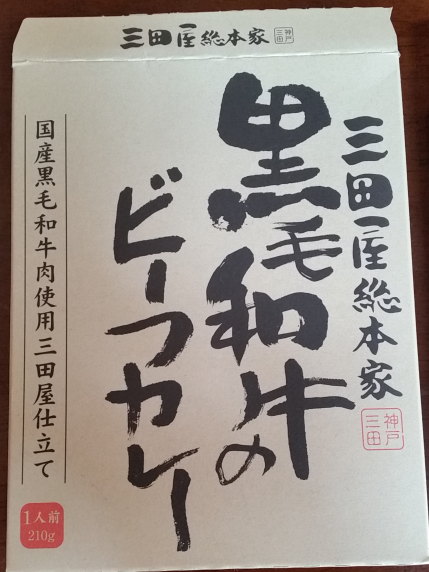 三田屋総本家
神戸
三田
三田屋総本家
神戸
三田
黒毛和牛の
ビーフカレー
国産黒毛和牛肉使用三田屋仕立て
1人前
210g